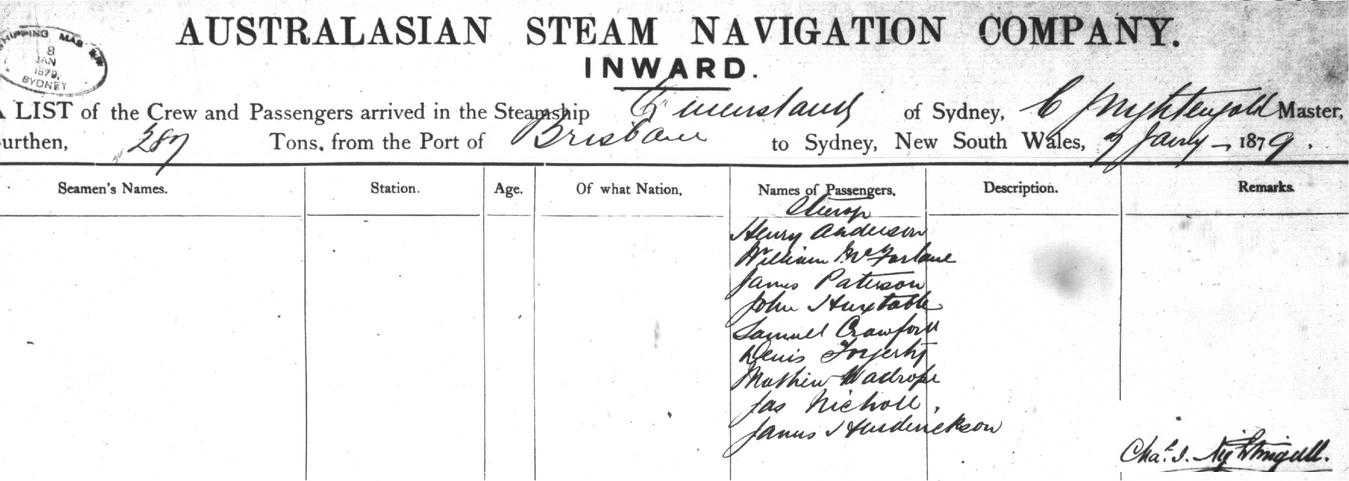 AUSTRALASIAN STEAM NAVIGATION COMPANY.
SHIPPING MAS
8
JAN
1879
SYDNEY
INWARD.
A LIST of the Crew and Passengers arrived in the Steamship Queensland of Sydney, C J Nightengold Master,
urthen, 287 Tons, from the Port of Brisbane to Sydney, New South Wales, 7 Jany 1879.
Seamen's Names. Station. Age. Of what Nation, Names of Passengers, Description. Remarks.
Steerage
Henry Anderson
William McFarlane
James Paterson
John Huxtable
Samuel Crawford
Denis Fogerty
Mathew Wadrope
Jas Nicholl
James Henderickson
Chas. J. Nightingall.